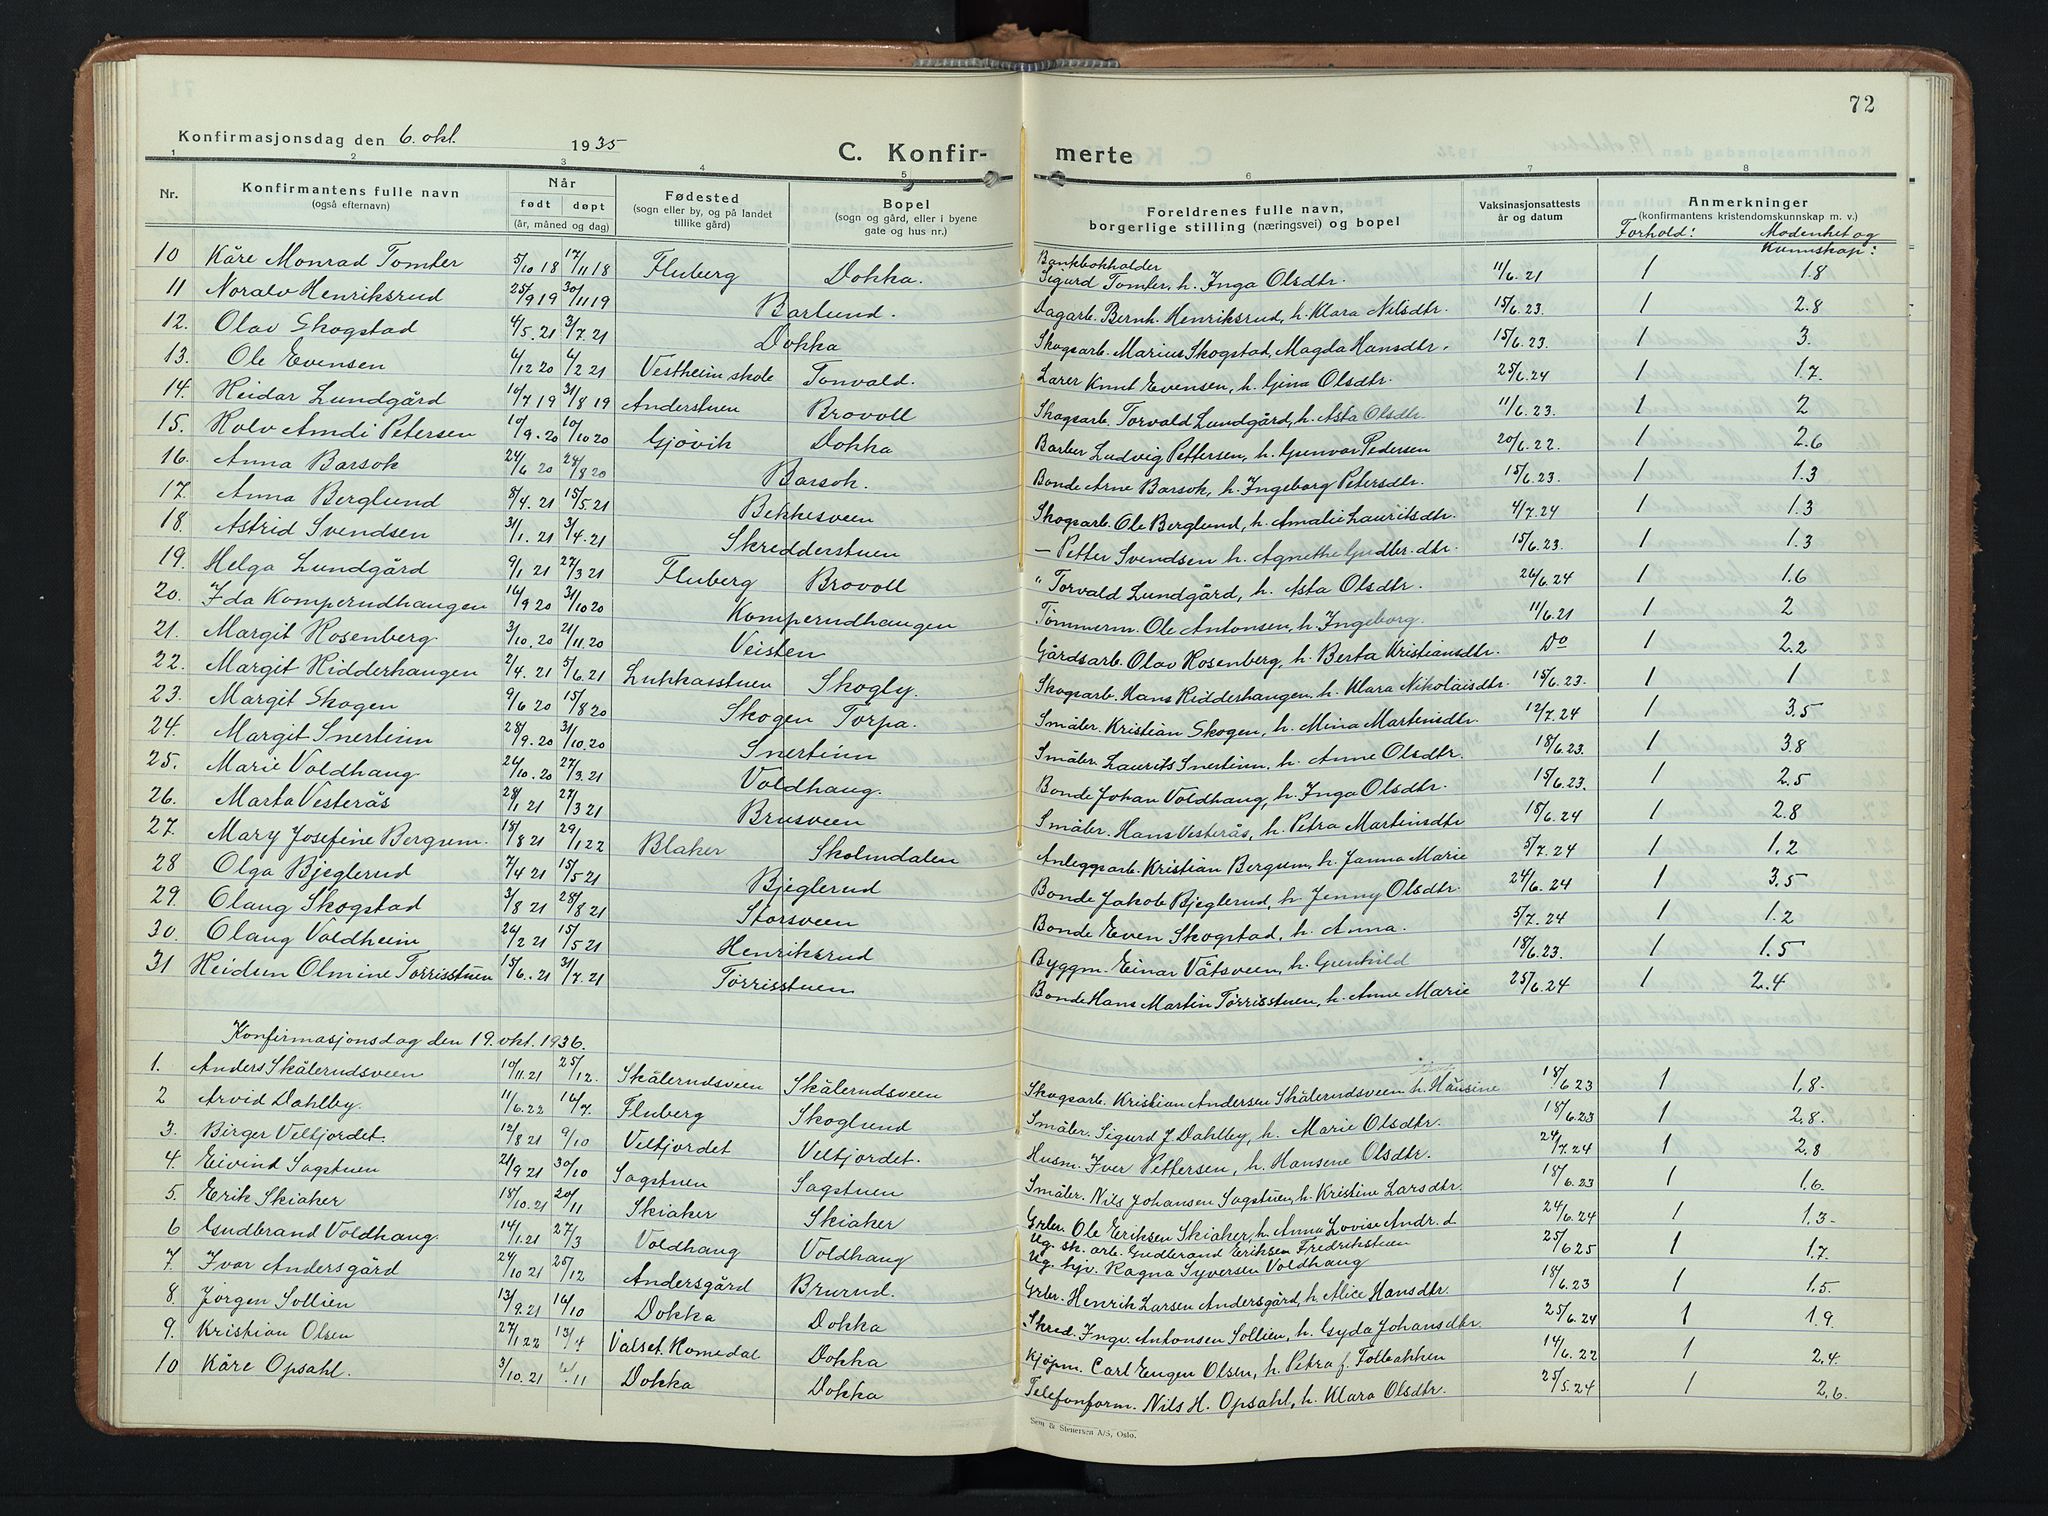 72
Konfirmasjonsdag den 6. okt. 1935
C. Konfir- merte
1 2 3 4 5 6 7 8
Nr. Konfirmantens fulle navn (også efternavn) Når født døpt (år, måned og dag) Fødested (sogn eller by, og på landet tillike gård) Bopel (sogn og gård, eller i byene gate og hus nr.) Foreldrenes fulle navn, borgerlige stilling (næringsvei) og bopel Vaksinasjonsattests år og datum Anmerkninger (konfirmantens kristendomskunnskap m. v.)
Forhold: Modenhet og Kunnskap:
10 Kåre Monrad Tomter 5/10 18 17/11 18 Fluberg Dokka. Bankbokholder Sigurd Tomter, h. Inga Olsdtr. 11/6. 21 1 1.8
11 Noralv Henriksrud 25/9 19 30/11 19 Barlund. Dagarb. Bernh. Henriksrud, h. Klara Nilsdtr. 15/6. 23. 1 2.8
12. Olav Skogstad 4/5. 21 31/7. 21 Dokka Skogsarb. Marius Skogstad, Magda Hansdtr. 15/6. 23. 1 3.
13. Ole Evensen 6/12 20 6/2 21 Vestheim skole Tonvald. Lærer Knut Evensen, h. Gina Olsdtr. 25/6. 24 1 1.7.
14. Reidar Lundgård 10/7 19 31/8 19 Anderstuen Brovoll Skogsarb. Torvald Lundgård, h. Asta Olsdtr. 11/6. 23. 1 2
15. Rolv Arndi Petersen 10/9. 20 10/10 20 Gjøvik Dokka Barber Ludvig Pettersen, h. Gunvor Pedersen 20/6. 22. 1 2.6
16. Anna Barsok 24/6 20 24/8 20 Barsok. Bonde Arne Barsok, h. Ingeborg Petersdtr. 15/6. 23. 1 1.3
17. Anna Berglund 8/4. 21 15/5. 21 Bekkesveen Skogsarb. Ole Berglund, h. Amalie Lauritsdtr. 4/7. 24 1 1.3
18. Astrid Svendsen 31/1. 21 3/4. 21 Skredderstuen — Petter Svendsen h. Agnethe Gudbr. dtr. 15/6. 23. 1 1.3
19. Helga Lundgård 9/1 21 27/3 21 Fluberg Brovoll " Torvald Lundgård, h. Asta Olsdtr. 26/6. 24 1 1.6
20. Ida Komperudhaugen 16/9 20 31/10 20 Komperudhaugen Tømmerm. Ole Antonsen, h. Ingeborg. 11/6. 21 1 2
21. Margit Rosenberg 3/10. 20 21/11. 20 Veisten Gårdsarb. Olav Rosenberg, h. Berta Kristiansdtr. Do 1 2.2
22. Margit Ridderhaugen 2/4. 21 5/6. 21 Lukkasstuen Skogly. Skogsarb. Hans Ridderhaugen, h. Klara Nikolaisdtr. 15/6. 23. 1 1
23. Margit Skogen 9/6 20 15/8 20 Skogen Torpa. Småbr. Kristian Skogen, h. Mina Martinsdtr. 12/7. 24 1 3.5
24. Margit Snertinn 28/9. 20 31/10. 20 Snertinn Småbr. Laurits Snertinn, h. Anne Olsdtr. 18/6. 23. 1 3.8
25. Marie Voldhaug 24/10. 20 27/3. 21 Voldhaug. Bonde Johan Voldhaug, h. Inga Olsdtr. 15/6. 23. 1 2.5
26. Marta Vesterås 28/1 21 27/3 21 Brusveen Småbr. Hans Vesterås, h. Petra Martinsdtr 18/6. 24 1 2.8
27. Mary Josefine Bergum. 18/8 21 29/1 22 Blaker Skolmdalen Anleggsarb. Kristian Bergum, h. Janna Marie 5/7. 24 1 1.2
28 Olga Bjeglerud 7/4 21 15/5 21 Bjeglerud Bonde Jakob Bjeglerud, h. Jenny Olsdtr. 24/6. 24 1 3.5
29. Olaug Skogstad 3/8 21 28/8 21 Storsveen Bonde Even Skogstad, h. Anna. 5/7. 24 1 1.2
30. Olaug Voldheim 26/2 21 15/5 21 Henriksrud Byggm. Einar Våtsveen, h. Gunhild 18/6. 23. 1 1.5
31 Reidun Olmine Tørrisstuen 15/6. 21 31/7. 21 Tørrisstuen Bonde Hans Martin Tørrisstuen, h. Anne Marie 25/6. 24 1 2.4
Konfirmasjonsdag den 19. okt. 1936.
1. Anders Skålerudsveen 10/11. 21 25/12. Skålerudsveen Skålerudsveen Skogsarb. Kristian Andersen Skålerudsveen h. Hansine 18/6 23 1 1,8.
2 Arvid Dahlby. 11/6. 22 16/7. Fluberg Skoglund Småbr. Sigurd J. Dahlby, h. Marie Olsdtr. 18/6. 23 1 2,8.
3. Birger Velfjordet. 12/8 21 9/10 Velfjordet Velfjordet. Husm. Iver Pettersen, h. Hansene Olsdtr. 24/7. 24 1 2,8
4. Eivind Sagstuen 21/9 21 30/10 Sagstuen Sagstuen Småbr. Nils Johansen Sagstuen, h. Kristine Larsdtr. 18/6. 23 1 1.6.
5. Erik Skiaker 18/10. 21 20/11 Skiaker Skiaker Grbr. Ole Eriksen Skiaker, h. Anna Lovise Andr. d. 24/6. 24 1 1,3.
6 Gudbrand Voldhaug. 14/1. 21 27/3 Voldhaug Voldhaug Ug. sk. arb. Gudbrand Eriksen Fredrikstuen Ug. hjv. Ragna Syversen Voldhaug 25/6 25 1 1.7.
7. Ivar Andersgård 24/10 21 25/12 Andersgård Brurud. Grbr. Henrik Larsen Andersgård, h. Alice Hansdtr. 18/6. 23 1 1,5.
8. Jørgen Sollien 13/9. 21 16/10 Dokka Dokka Skred. Ingv. Antonsen Sollien, h. Gyda Johansdtr. 25/6. 24 1 1.9.
9. Kristian Olsen 27/1 22 13/4 Valset. Romedal Dokka Kjøpm. Carl Eugen Olsen, h. Petra f. Tolbakken 14/6. 22 1 2,4.
10 Kåre Opsahl. 3/10. 21 6/11 Dokka Dokka Telefonform. Nils H. Opsahl, h. Klara Olsdtr. 25/5. 24 1 2,6.
Sem & Stenersen A/S, Oslo.